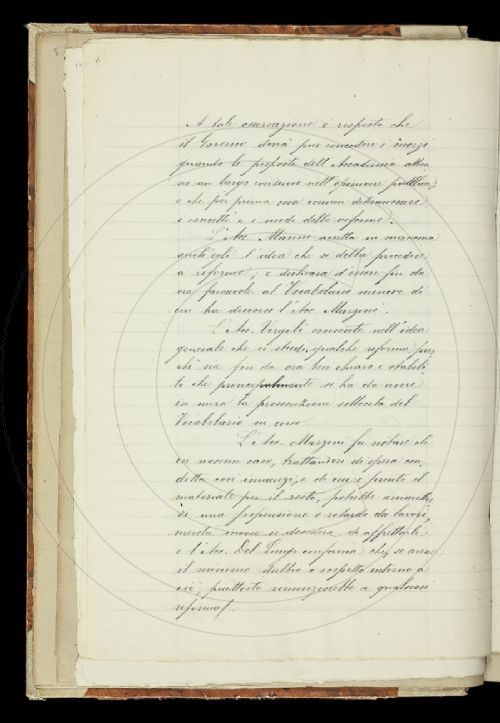 A tale osservazione è risposto che
il Governo dovrà pur concedere i mezzi
quando le proposte dell'Accademia abbia
no un largo consenso nell'opinione pubblica;
e che per prima cosa conviene determinare
i concetti e i modi delle riforme.
L'Acc. Manni accetta in massima
anch'egli l'idea che si debba procedere
a riforme, e dichiara d'essere fin da
ora favorevole al Vocabolario minore di
cui ha discorso l'Acc. Mazzoni.
L'Acc. Virgili consente nell'idea
generale che si studi qualche riforma, pur
chè sia fin da ora ben chiaro e stabili
to che principalmente si ha da avere
in mira la prosecuzione sollecita del
Vocabolario in corso
L'Acc. Mazzoni fa notare che
in nessun caso, trattandosi di opera con
dotta così innanzi, e di cui è pronto il
materiale per il resto, potrebbe ammetter
si una sospensione o ritardo dei lavori,
mentre invece si desidera di affrettarli:
e l'Acc. Del Lungo conferma che, se avesse
il minimo dubbio o sospetto intorno a
ciò, piuttosto rinunzierebbe a qualsiasi
riforma.